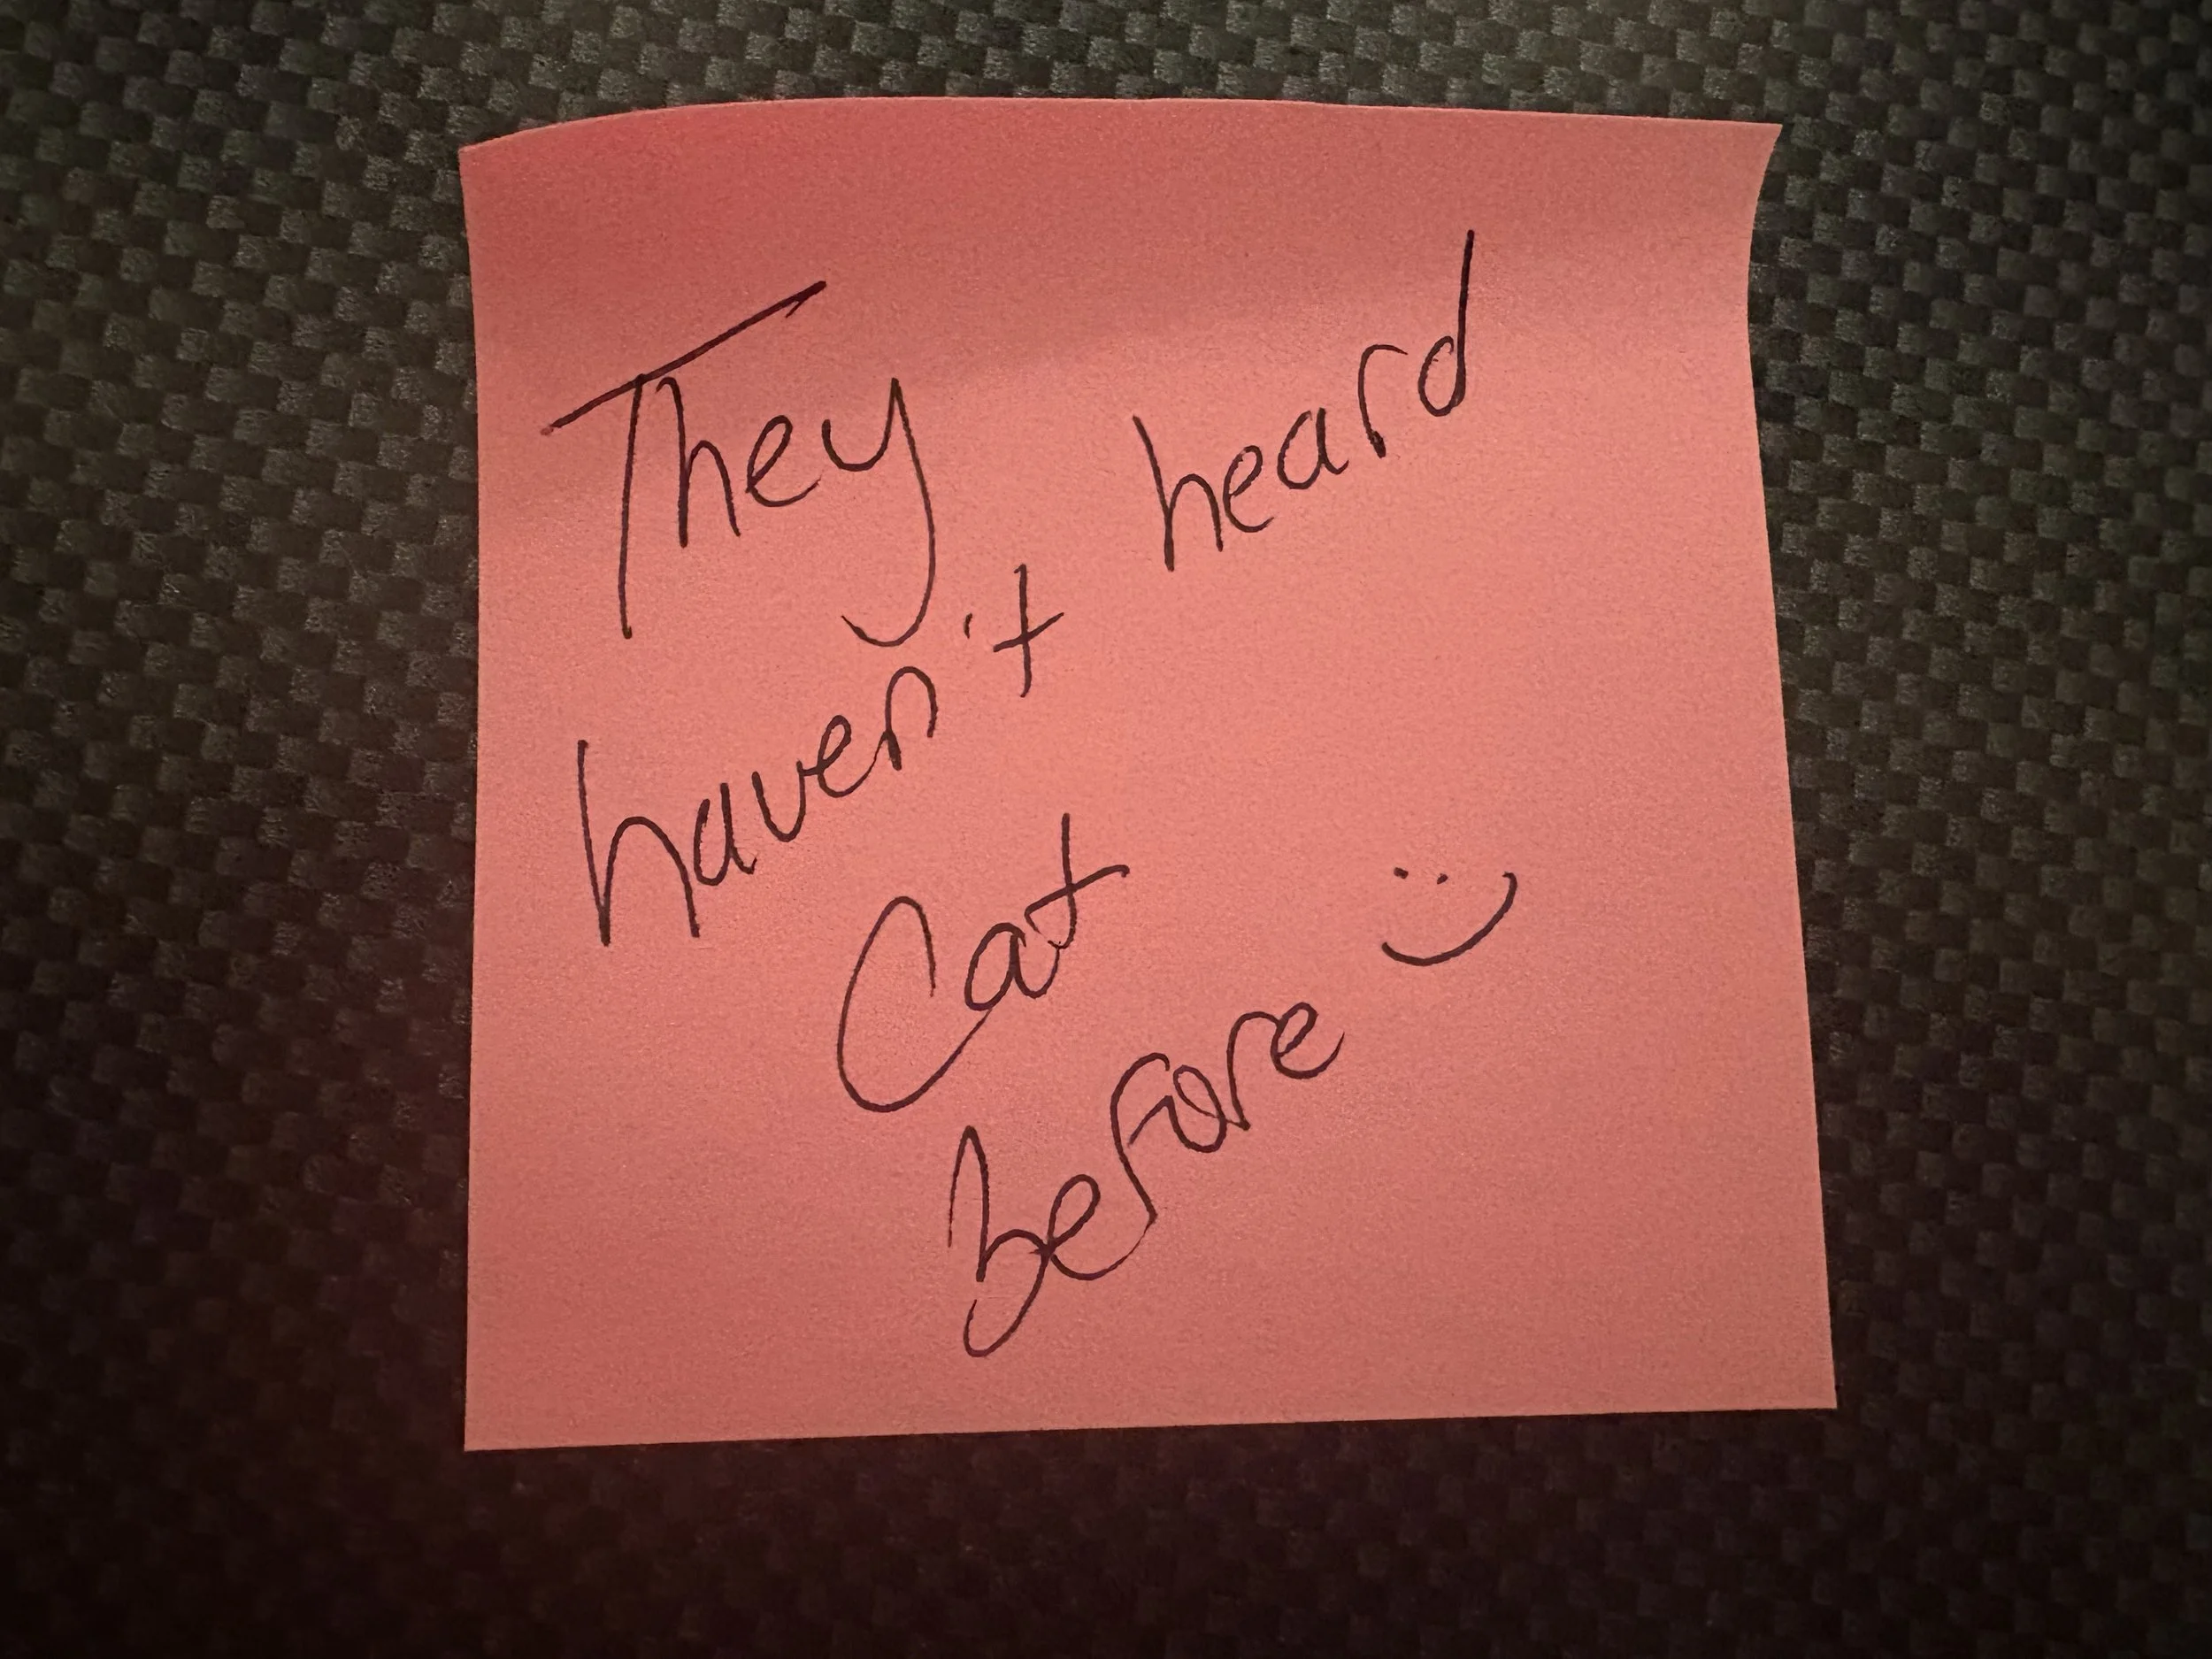 They
haven't heard
Cat
Before :)